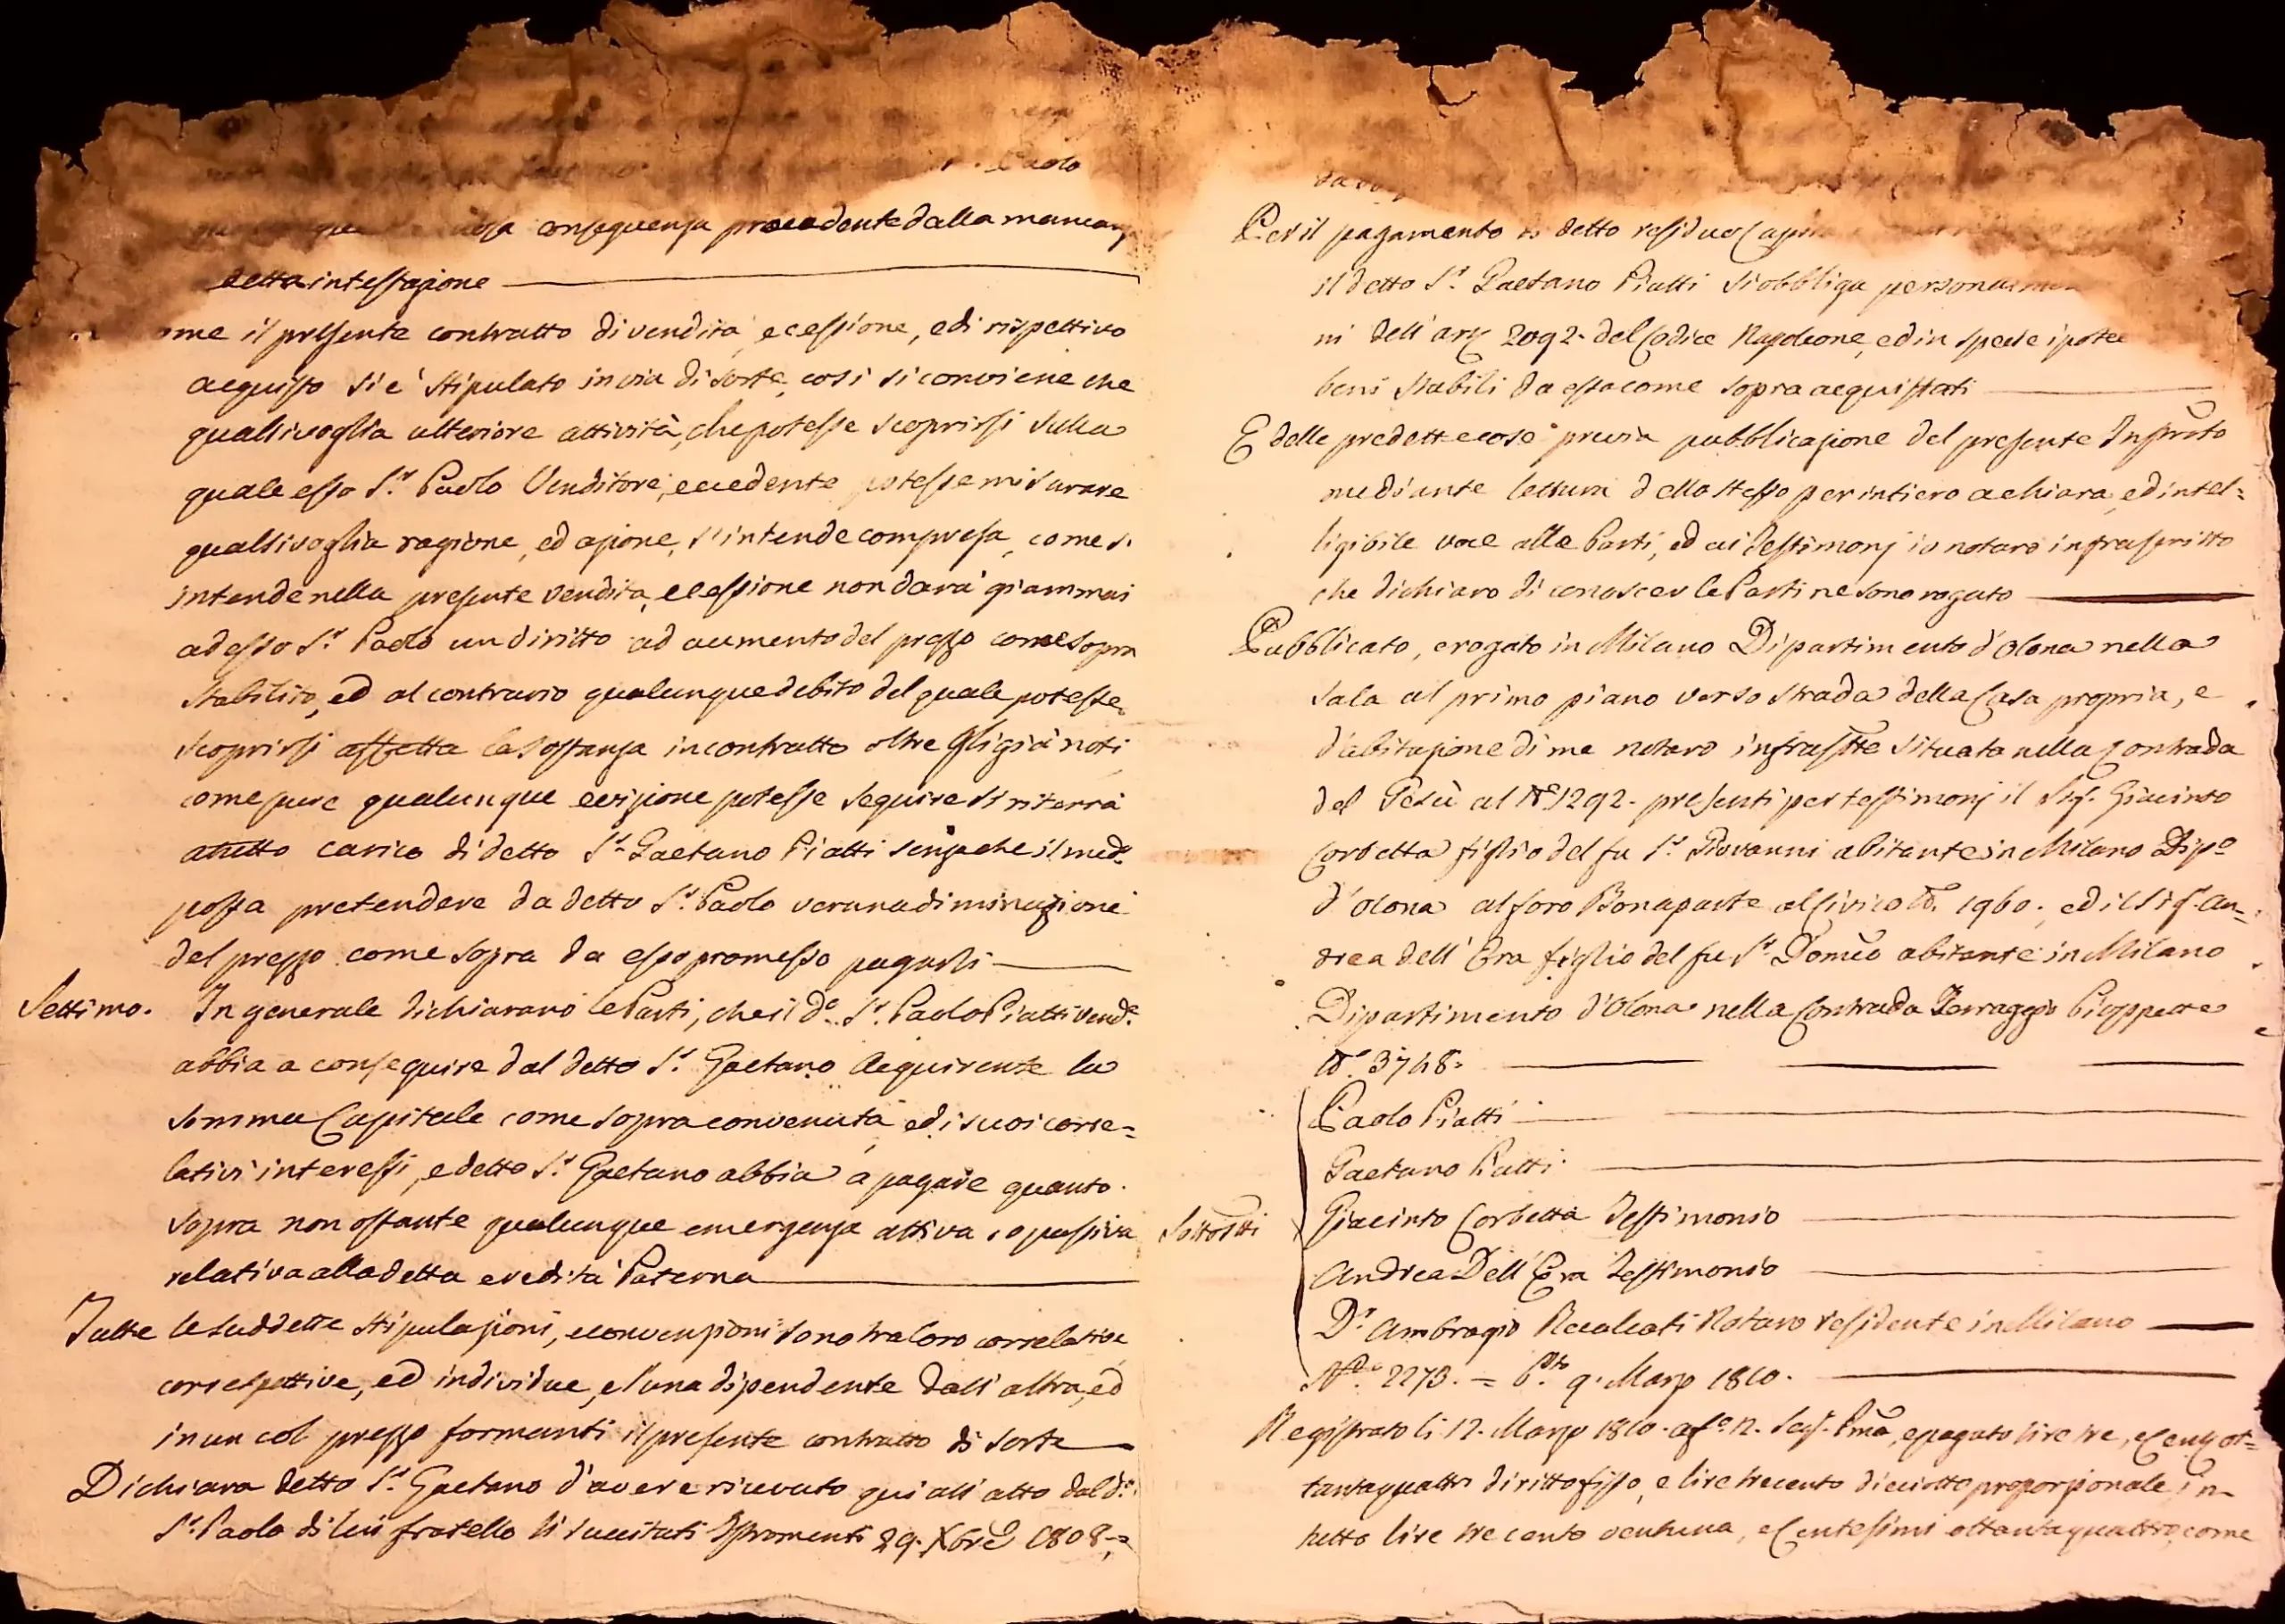 Paolo
conseguenza procedente dalla mancanza
detta intestazione
ome il presente contratto di vendita, e cessione, e di rispettivo
acquisto si è stipulato in via di sorte, così si conviene che
qualsivoglia ulteriore attività, che potesse scoprirsi sulla
quale esso S.r Paolo Venditore, e cedente potesse misurare
qualsivoglia ragione, ed azione, s'intende compresa, come s'
intende nella presente vendita, e cessione non darà giammai
ad esso S.r Paolo un diritto ad aumento del prezzo come sopra
stabilito, ed al contrario qualunque debito del quale potesse
scoprirsi affetta la sostanza in contratto oltre gli già noti
come pure qualunque evizione potesse seguire si riterrà
a tutto carico di detto S.r Gaetano Piatti senza che il med.o
possa pretendere da detto S.r Paolo veruna diminuzione
del prezzo come sopra da esso promesso pagarsi
Settimo. In generale dichiarano le Parti, che il d.o S.r Paolo Piatti vend.e
abbia a conseguire dal detto S.r Gaetano Acquirente la
somma Capitale come sopra convenuta ed i suoi corre=
lativi interessi, e detto S.r Gaetano abbia a pagare quanto
sopra non ostante qualunque emergenza attiva, o passiva
relativa alla detta eredità Paterna
Tutte le suddette stipulazioni, e convenzioni sono tra loro correlative
correspettive, ed individue, e l'una dipendente dall'altra, ed
in un col prezzo formanti il presente contratto di sorte
Dichiara detto S.r Gaetano d'avere ricevuto qui all'atto dal d.o
S.r Paolo di lui fratello li succitati Istromenti 29. Xbre 1808=
Per il pagamento di detto residuo
il detto S.r Gaetano Piatti si obbliga
ni dell'art. 2092. del Codice Napoleone, ed in specie
beni stabili da esso come sopra acquistati
E delle predette cose previa pubblicazione del presente Instr̃to
mediante lettura dello stesso per intiero a chiara, ed intel=
ligibile voce alle Parti, ed ai Testimonj io notaro infrascritto
che dichiaro di conoscer le Parti ne sono rogato
Pubblicato, e rogato in Milano Dipartimento d'Olona nella
sala al primo piano verso strada della Casa propria, e
d'abitazione di me notaro infrascr̃tto situata nella Contrada
del Gesù al N.o 1292. presenti per testimonj il Sig. Giacinto
Corbetta figlio del fu S.r Giovanni abitante in Milano Dip.o
d'Olona al foro Bonaparte al Civico N.o 1960., ed il Sig. An=
drea dell'Era figlio del fu S.r Domeo abitante in Milano
Dipartimento d'Olona nella Contrada Terraggio Pioppette
N.o 3748.
Paolo Piatti
Gaetano Piatti
Sottos̃tti Giacinto Corbetta Testimonio
Andrea Dell'Era Testimonio
D.r Ambrogio Recalcati Notaro residente in Milano
N.o 2273. = 9. Marzo 1810.
Registrato li 12. Marzo 1810. a f.o 12. e pagato lire tre, e Cent. ot=
tantaquattro diritto fisso, e lire trecento dieciotto proporzionale in
tutto lire trecento ventuna, e Centesimi ottantaquattro, come